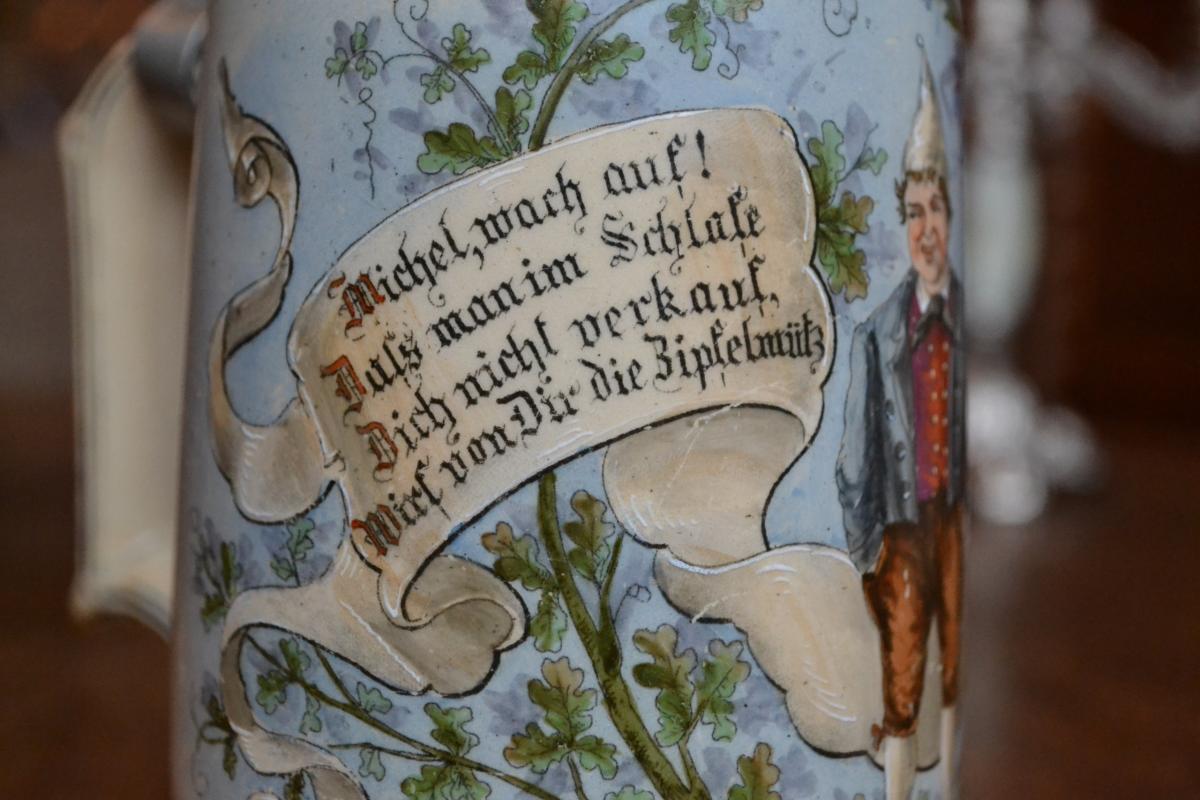 Michel, wach auf!
Dass man im Schlafe
Dich nicht verkauf,
Wirf von Dir die Zipfelmütz